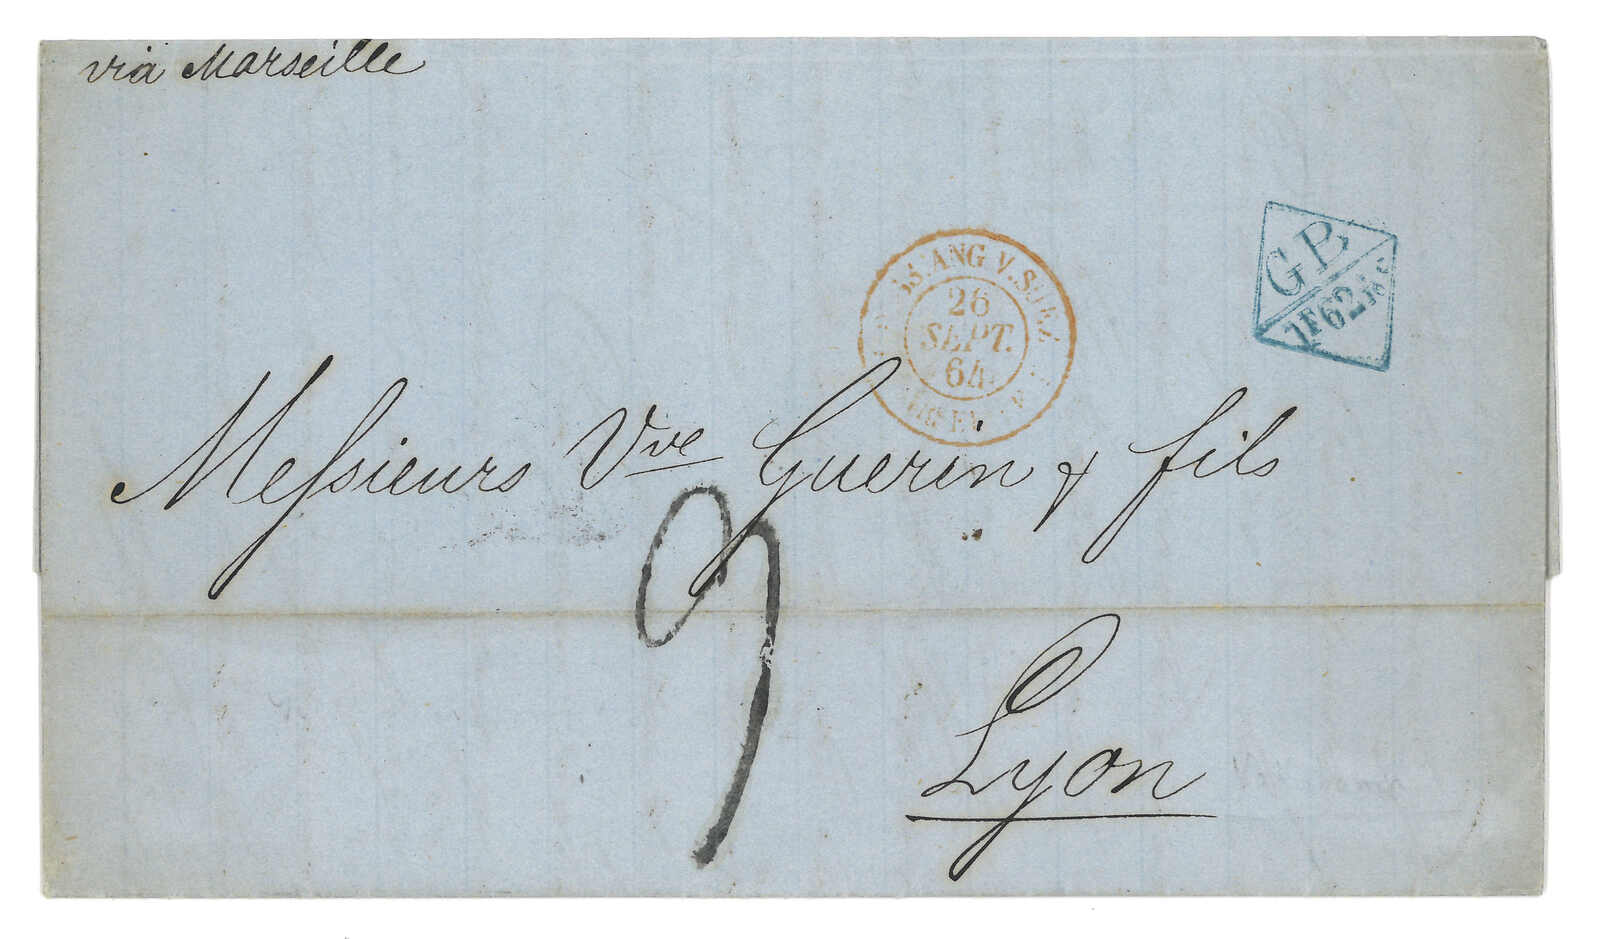 via Marseille
ANG. V. SUEZ
26
SEPT.
64
GB
1F62
Messieurs Vve Guerin & fils
9
Lyon